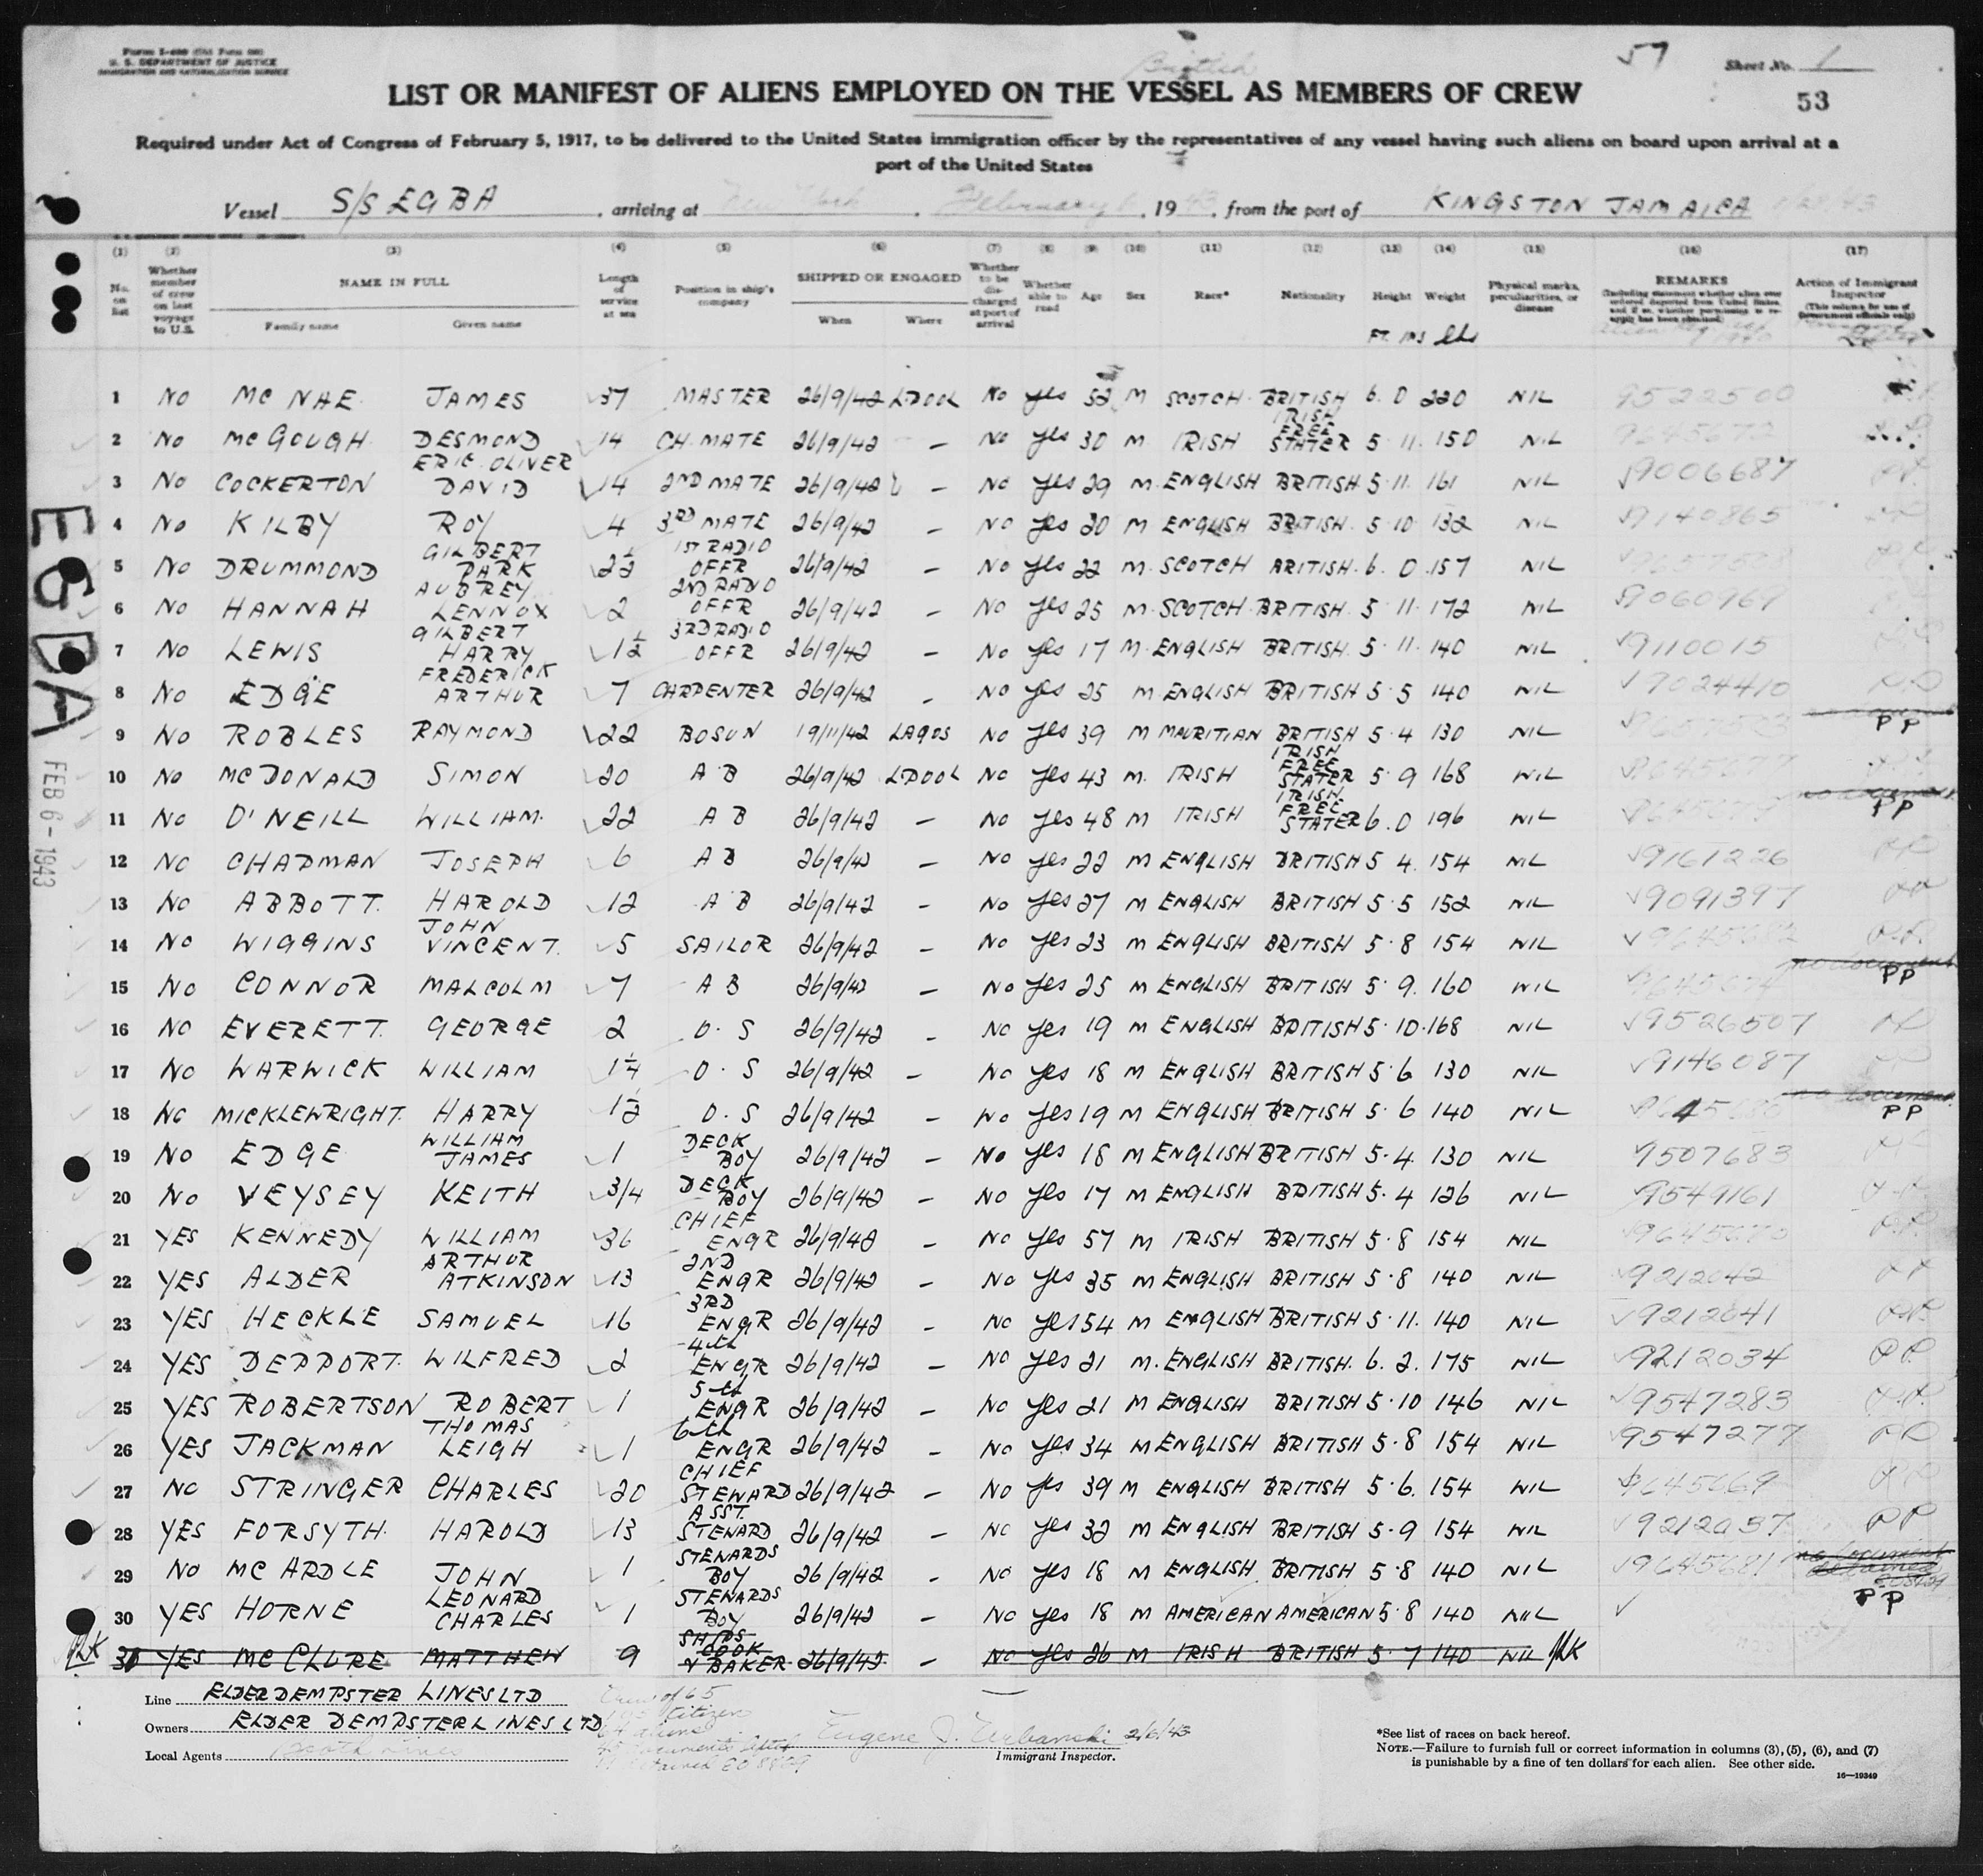 Form I-480
U. S. DEPARTMENT OF JUSTICE
IMMIGRATION AND NATURALIZATION SERVICE
British
57
Sheet No. 1
LIST OR MANIFEST OF ALIENS EMPLOYED ON THE VESSEL AS MEMBERS OF CREW
53
Required under Act of Congress of February 5, 1917, to be delivered to the United States immigration officer by the representatives of any vessel having such aliens on board upon arrival at a
port of the United States
Vessel S/S EGBA, arriving at New York, February, 1943, from the port of KINGSTON JAMAICA
(1) (2) (3) (4) (5) (6) (7) (8) (9) (10) (11) (12) (13) (14) (15) (16) (17)
No. on list
Whether member of crew on last voyage to U.S.
NAME IN FULL
Family name
Given name
Length of service at sea
Position in ship's company
SHIPPED OR ENGAGED
When
Where
Whether to be discharged at port of arrival
Whether able to read
Age
Sex
Race*
Nationality
Height
Weight
FT. INS lbs
Physical marks, peculiarities, or disease
REMARKS
(Including statement whether alien ever ordered deported from United States, and if so, whether permission to reapply has been obtained)
Action of Immigrant Inspector
(This column for use of Government officials only)
1 NO MC NAE JAMES 37 MASTER 26/9/42 L.POOL NO yes 52 M SCOTCH BRITISH 6.0 220 NIL 9522500
2 NO MCGOUGH DESMOND 14 CH. MATE 26/9/42 — NO yes 30 M IRISH IRISH FREE STATER 5 11 150 NIL
3 NO COCKERTON ERIC OLIVER DAVID 14 2ND MATE 26/9/42 — NO yes 29 M ENGLISH BRITISH 5 11 161 NIL 9006687
4 NO KILBY ROY 4 3RD MATE 26/9/42 — NO yes 20 M ENGLISH BRITISH 5 10 132 NIL 9140865
5 NO DRUMMOND GILBERT PARK 2½ 1ST RADIO OFFR 26/9/42 — NO yes 22 M SCOTCH BRITISH 6.0 157 NIL
6 NO HANNAH AUBREY LENNOX 2 2ND RADIO OFFR 26/9/42 — NO yes 25 M SCOTCH BRITISH 5 11 172 NIL 9060969
7 NO LEWIS GILBERT HARRY 1½ 3RD RADIO OFFR 26/9/42 — NO yes 17 M ENGLISH BRITISH 5 11 140 NIL 9110015
8 NO EDGE FREDERICK ARTHUR 7 CARPENTER 26/9/42 — NO yes 25 M ENGLISH BRITISH 5 5 140 NIL 9024410
9 NO ROBLES RAYMOND 22 BOSUN 19/11/42 LAGOS NO yes 39 M MAURITIAN BRITISH 5 4 130 NIL PP
10 NO MCDONALD SIMON 20 A B 26/9/42 L.POOL NO yes 43 M IRISH IRISH FREE STATER 5 9 168 NIL
11 NO O'NEILL WILLIAM 22 A B 26/9/42 — NO yes 48 M IRISH IRISH FREE STATER 6.0 196 NIL PP
12 NO CHAPMAN JOSEPH 6 A B 26/9/42 — NO yes 22 M ENGLISH BRITISH 5 4 154 NIL 9161226
13 NO ABBOTT HAROLD 12 A B 26/9/42 — NO yes 27 M ENGLISH BRITISH 5 5 152 NIL 9091397
14 NO WIGGINS JOHN VINCENT 5 SAILOR 26/9/42 — NO yes 23 M ENGLISH BRITISH 5.8 154 NIL
15 NO CONNOR MALCOLM 7 A B 26/9/42 — NO yes 25 M ENGLISH BRITISH 5.9 160 NIL PP
16 NO EVERETT GEORGE 2 O.S 26/9/42 — NO yes 19 M ENGLISH BRITISH 5.10 168 NIL 9526507
17 NO WARWICK WILLIAM 1¼ O.S 26/9/42 — NO yes 18 M ENGLISH BRITISH 5.6 130 NIL 9146087
18 NO MICKLEWRIGHT HARRY 1½ O.S 26/9/42 — NO yes 19 M ENGLISH BRITISH 5.6 140 NIL PP
19 NO EDGE WILLIAM JAMES 1 DECK BOY 26/9/42 — NO yes 18 M ENGLISH BRITISH 5.4 130 NIL 9507683
20 NO VEYSEY KEITH 3/4 DECK BOY 26/9/42 — NO yes 17 M ENGLISH BRITISH 5.4 126 NIL 9549161
21 YES KENNEDY WILLIAM 36 CHIEF ENGR 26/9/42 — NO yes 57 M IRISH BRITISH 5.8 154 NIL
22 YES ALDER ARTHUR ATKINSON 13 2ND ENGR 26/9/42 — NO yes 35 M ENGLISH BRITISH 5.8 140 NIL 9212042
23 YES HECKLE SAMUEL 16 3RD ENGR 26/9/42 — NO yes 54 M ENGLISH BRITISH 5.11 140 NIL 9212041
24 YES DEPPORT WILFRED 2 4th ENGR 26/9/42 — NO yes 21 M ENGLISH BRITISH 6.2 175 NIL 9212034 PP
25 YES ROBERTSON ROBERT 1 5th ENGR 26/9/42 — NO yes 21 M ENGLISH BRITISH 5.10 146 NIL 9547283
26 YES JACKMAN THOMAS LEIGH 1 6th ENGR 26/9/42 — NO yes 34 M ENGLISH BRITISH 5.8 154 NIL 9547277
27 NO STRINGER CHARLES 20 CHIEF STEWARD 26/9/42 — NO yes 39 M ENGLISH BRITISH 5.6 154 NIL 9645669
28 YES FORSYTH HAROLD 13 ASST. STEWARD 26/9/42 — NO yes 32 M ENGLISH BRITISH 5.9 154 NIL 9212037 PP
29 NO MC ARDLE JOHN 1 STEWARDS BOY 26/9/42 — NO yes 18 M ENGLISH BRITISH 5.8 140 NIL 9645681 no document detained
30 YES HORNE LEONARD CHARLES 1 STEWARDS BOY 26/9/42 — NO yes 18 M AMERICAN AMERICAN 5.8 140 NIL PP
31 YES MC CLURE MATTHEW 9 SHIPS COOK & BAKER 26/9/42 — NO yes 26 M IRISH BRITISH 5.7 140 NIL
EGBA
FEB 6 - 1943
Line ELDER DEMPSTER LINES LTD
Owners ELDER DEMPSTER LINES LTD
Local Agents
Crew of 65
Eugene J. Urbanski 2/6/43
Immigrant Inspector.
*See list of races on back hereof.
NOTE.—Failure to furnish full or correct information in columns (3), (5), (6), and (7)
is punishable by a fine of ten dollars for each alien. See other side.
16—19349